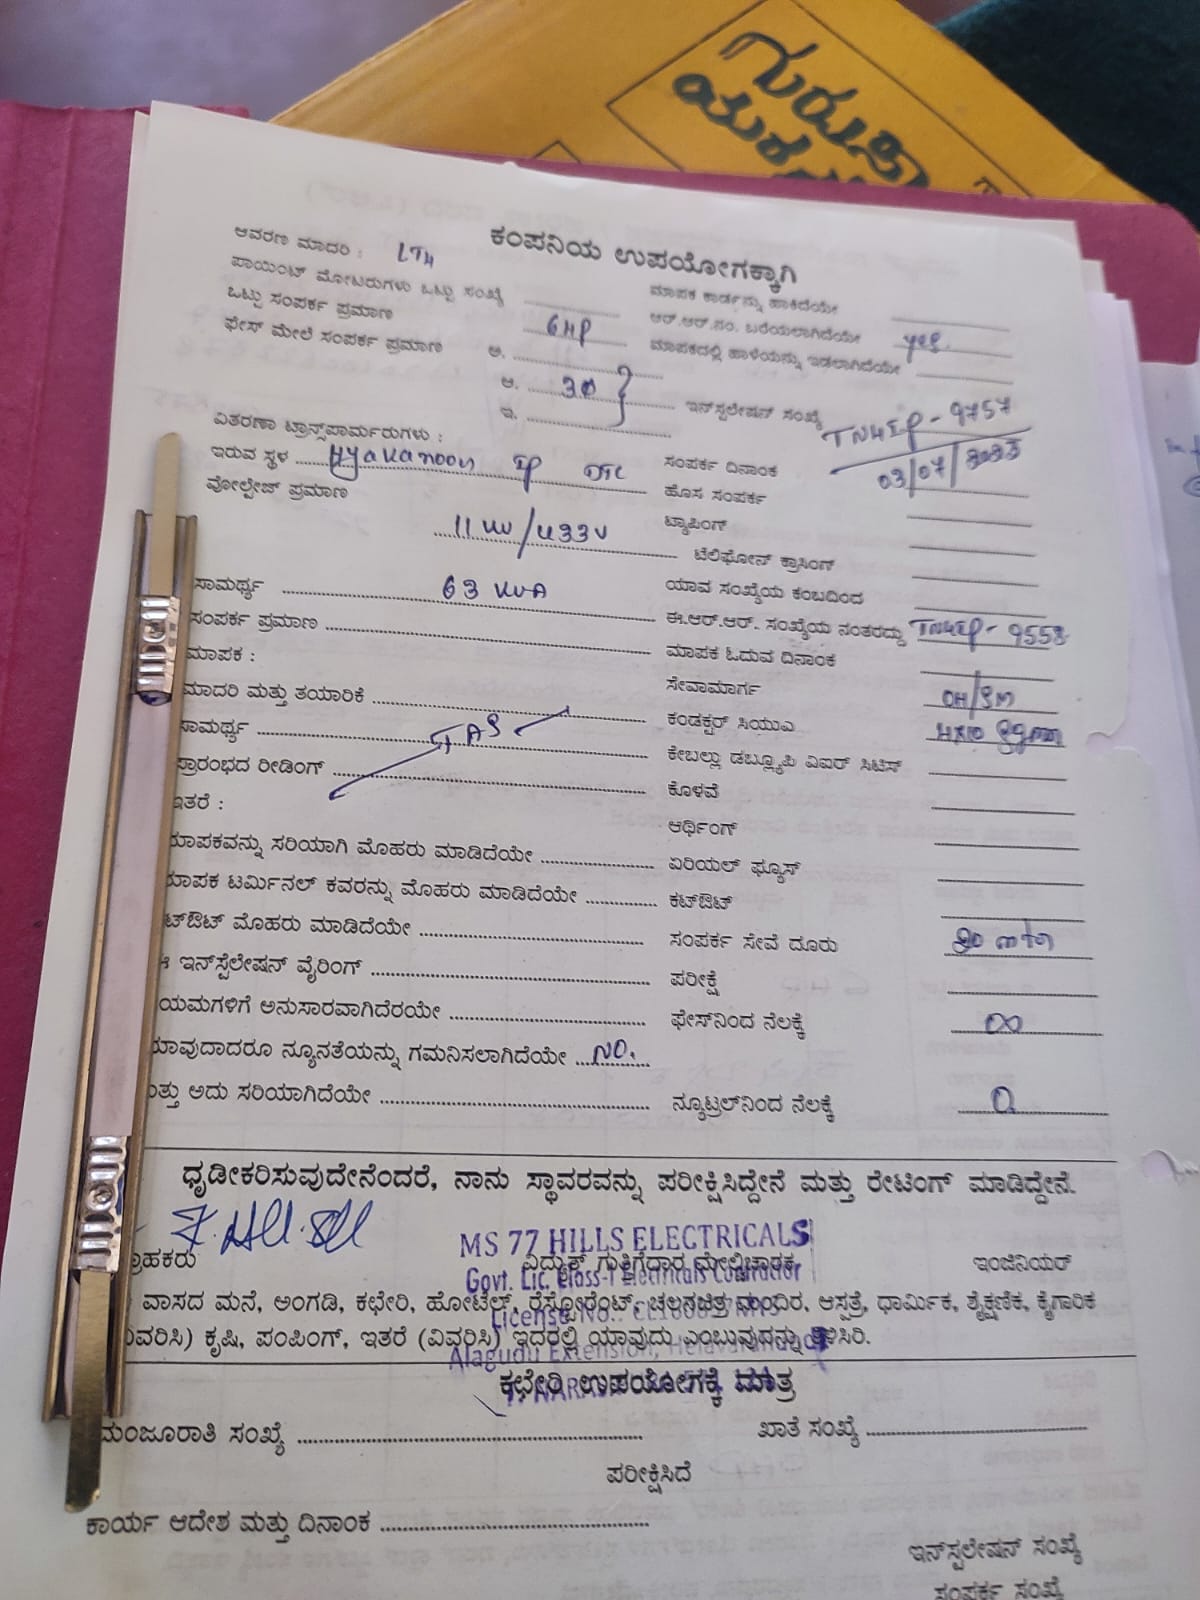 ಗುರುಸಿ
ಕಂಪನಿಯ ಉಪಯೋಗಕ್ಕಾಗಿ
ಆವರಣ ಮಾದರಿ : LT4
ಪಾಯಿಂಟ್ ಮೋಟರುಗಳು ಒಟ್ಟು ಸಂಖ್ಯೆ
ಮಾಪಕ ಕಾರ್ಡನ್ನು ಹಾಕಿದೆಯೇ
ಒಟ್ಟು ಸಂಪರ್ಕ ಪ್ರಮಾಣ 6HP
ಆರ್.ಆರ್.ನಂ. ಬರೆಯಲಾಗಿದೆಯೇ yes.
ಫೇಸ್ ಮೇಲೆ ಸಂಪರ್ಕ ಪ್ರಮಾಣ ಅ.
ಮಾಪಕದಲ್ಲಿ ಹಾಳೆಯನ್ನು ಇಡಲಾಗಿದೆಯೇ
ಆ. 3Ø
ಇ.
ಇನ್‌ಸ್ಟಲೇಷನ್ ಸಂಖ್ಯೆ TN4IP - 9757
ವಿತರಣಾ ಟ್ರಾನ್ಸ್‌ಪಾರ್ಮರುಗಳು :
ಇರುವ ಸ್ಥಳ Hyakanoor IP DTC
ಸಂಪರ್ಕ ದಿನಾಂಕ 03/07/
ವೋಲ್ಟೇಜ್ ಪ್ರಮಾಣ
ಹೊಸ ಸಂಪರ್ಕ
11 KV/433V
ಟ್ಯಾಪಿಂಗ್
ಟೆಲಿಫೋನ್ ಕ್ರಾಸಿಂಗ್
ಸಾಮರ್ಥ್ಯ 63 KVA
ಯಾವ ಸಂಖ್ಯೆಯ ಕಂಬದಿಂದ
ಸಂಪರ್ಕ ಪ್ರಮಾಣ
ಈ.ಆರ್.ಆರ್. ಸಂಖ್ಯೆಯ ನಂತರದ್ದು TN4IP - 9558
ಮಾಪಕ :
ಮಾಪಕ ಓದುವ ದಿನಾಂಕ
ಮಾದರಿ ಮತ್ತು ತಯಾರಿಕೆ
ಸೇವಾಮಾರ್ಗ OH/SM
ಸಾಮರ್ಥ್ಯ
ಕಂಡಕ್ಟರ್ ಸಿಯುಎ 4X10 Sqmm
ಪ್ರಾರಂಭದ ರೀಡಿಂಗ್
ಕೇಬಲ್ಲು ಡಬ್ಲ್ಯೂಪಿ ವಿಐರ್ ಸಿಟಿಸ್
ಕೊಳವೆ
ಇತರೆ :
ಆರ್ಥಿಂಗ್
ಮಾಪಕವನ್ನು ಸರಿಯಾಗಿ ಮೊಹರು ಮಾಡಿದೆಯೇ
ಏರಿಯಲ್ ಫ್ಯೂಸ್
ಮಾಪಕ ಟರ್ಮಿನಲ್ ಕವರನ್ನು ಮೊಹರು ಮಾಡಿದೆಯೇ
ಕಟ್‌ಔಟ್
ಟ್‌ಔಟ್ ಮೊಹರು ಮಾಡಿದೆಯೇ
ಸಂಪರ್ಕ ಸೇವೆ ದೂರು
ಈ ಇನ್‌ಸ್ಪೆಲೇಷನ್ ವೈರಿಂಗ್
ಪರೀಕ್ಷೆ
ಯಮಗಳಿಗೆ ಅನುಸಾರವಾಗಿದೆರಯೇ
ಫೇಸ್‌ನಿಂದ ನೆಲಕ್ಕೆ ∞
ಯಾವುದಾದರೂ ನ್ಯೂನತೆಯನ್ನು ಗಮನಿಸಲಾಗಿದೆಯೇ NO.
ಮತ್ತು ಅದು ಸರಿಯಾಗಿದೆಯೇ
ನ್ಯೂಟ್ರಲ್‌ನಿಂದ ನೆಲಕ್ಕೆ 0
ಧೃಡೀಕರಿಸುವುದೇನೆಂದರೆ, ನಾನು ಸ್ಥಾವರವನ್ನು ಪರೀಕ್ಷಿಸಿದ್ದೇನೆ ಮತ್ತು ರೇಟಿಂಗ್ ಮಾಡಿದ್ದೇನೆ.
MS 77 HILLS ELECTRICALS
ಗ್ರಾಹಕರು ವಿದ್ಯುತ್ ಗುತ್ತಿಗೆದಾರ ಮೇಲ್ವಿಚಾರಕ ಇಂಜಿನಿಯರ್
Govt. Lic. Class-I Electricals Contractor
ವಾಸದ ಮನೆ, ಅಂಗಡಿ, ಕಛೇರಿ, ಹೋಟೆಲ್, ರೆಸ್ಟೋರೆಂಟ್, ಚಲನಚಿತ್ರ ಮಂದಿರ, ಆಸ್ಪತ್ರೆ, ಧಾರ್ಮಿಕ, ಶೈಕ್ಷಣಿಕ, ಕೈಗಾರಿಕ
License No.:
(ವಿವರಿಸಿ) ಕೃಷಿ, ಪಂಪಿಂಗ್, ಇತರೆ (ವಿವರಿಸಿ) ಇದರಲ್ಲಿ ಯಾವುದು ಎಂಬುವುದನ್ನು ತಿಳಿಸಿರಿ.
Alagudu Extension,
ಕಛೇರಿ ಉಪಯೋಗಕ್ಕೆ ಮಾತ್ರ
ಮಂಜೂರಾತಿ ಸಂಖ್ಯೆ
ಖಾತೆ ಸಂಖ್ಯೆ
ಪರೀಕ್ಷಿಸಿದೆ
ಕಾರ್ಯ ಆದೇಶ ಮತ್ತು ದಿನಾಂಕ
ಇನ್‌ಸ್ಪಲೇಷನ್ ಸಂಖ್ಯೆ
ಸಂಪರ್ಕ ಸಂಖ್ಯೆ